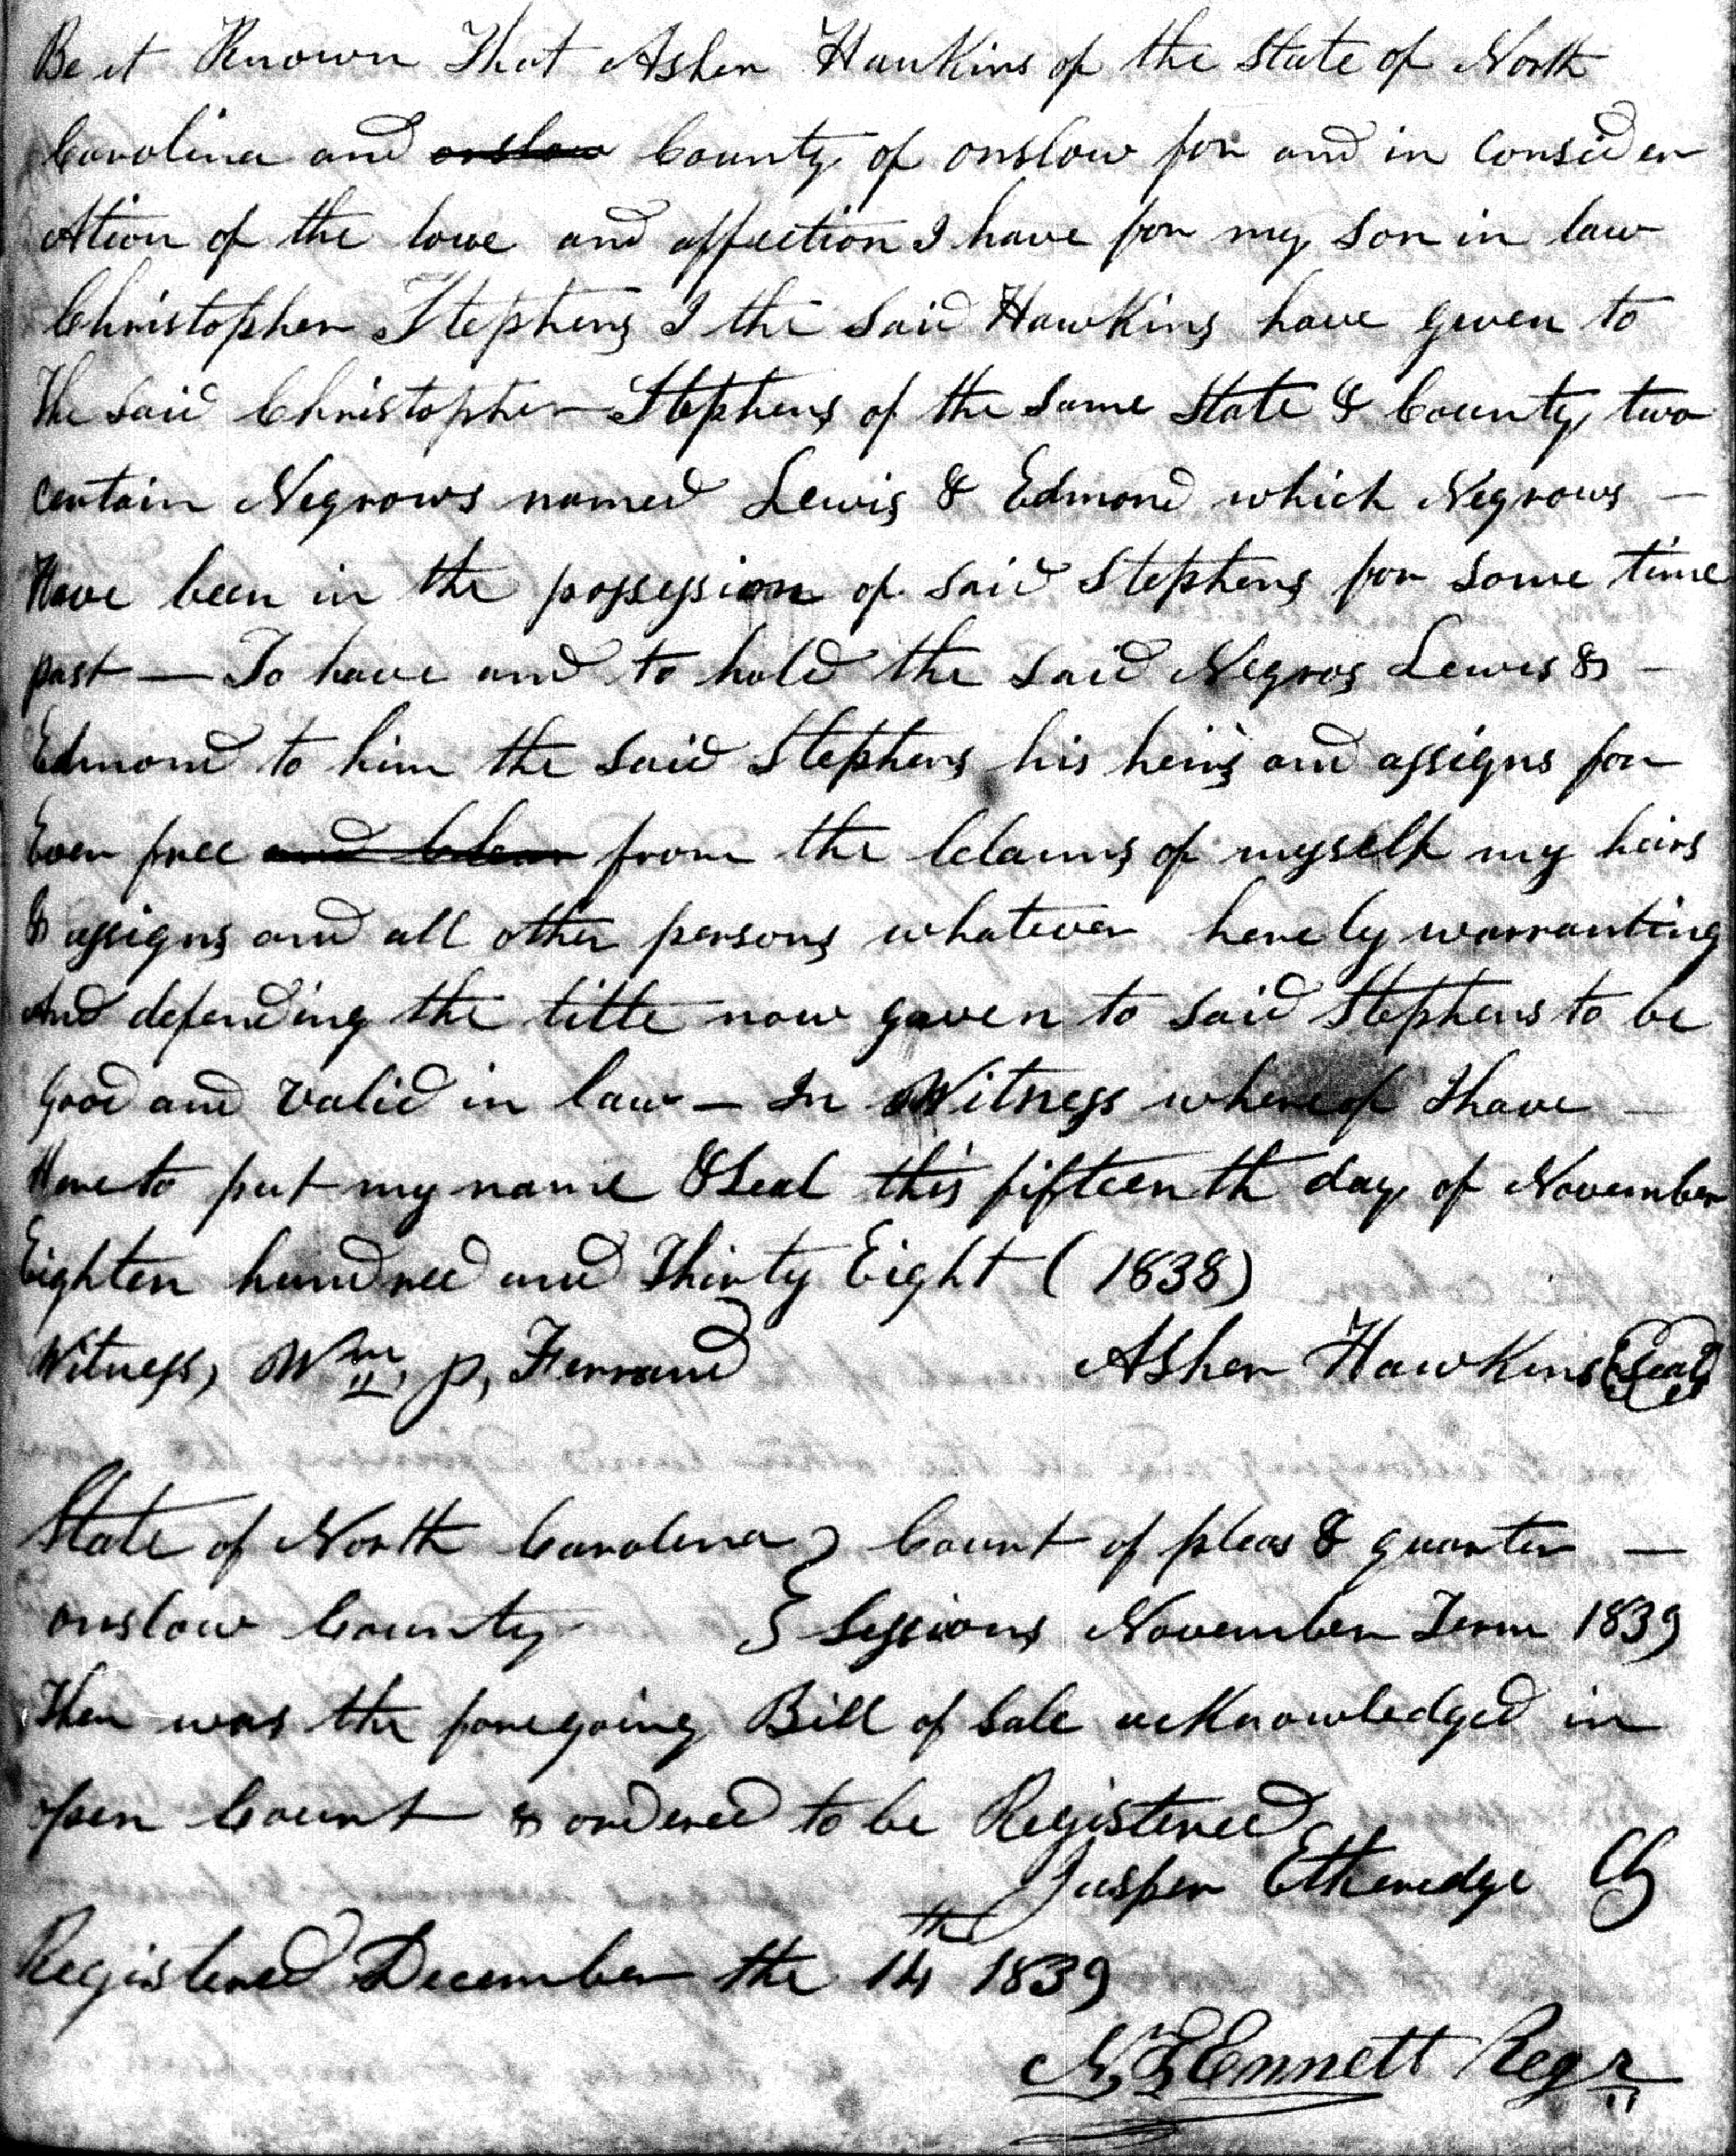 Be it Known That Asher Hawkins of the State of North
Carolina and onslow County of onslow for and in consider
ation of the love and affection I have for my son in law
Christopher Stephens I the Said Hawkins have given to
The Said Christopher Stephens of the Same State & County, two
certain Negrows named Lewis & Edmond which Negrows —
Have been in the possession of Said Stephens for Some time
past — To have and to hold the Said Negros Lewis & —
Edmond to him the Said Stephens his heirs and assigns for
Ever free and Clear from the Claims of myself my heirs
& assigns and all other persons whatever hereby warranting
And defending the title now given to Said Stephens to be
Good and valid in law — In Witness whereof I have —
Hereto put my name & Seal this fifteenth day of November
Eighten hundred and Thirty Eight (1838)
Witness, Wm. P, Ferrand Asher Hawkins (Seal)
State of North Carolina } Court of pleas & quarter —
onslow County } Sessions November Term 1839
Then was the foregoing Bill of Sale acknowledged in
open Court & ordered to be Registered
Jasper Etheredge Clk
Registered December the 14th 1839
Ennett Regr